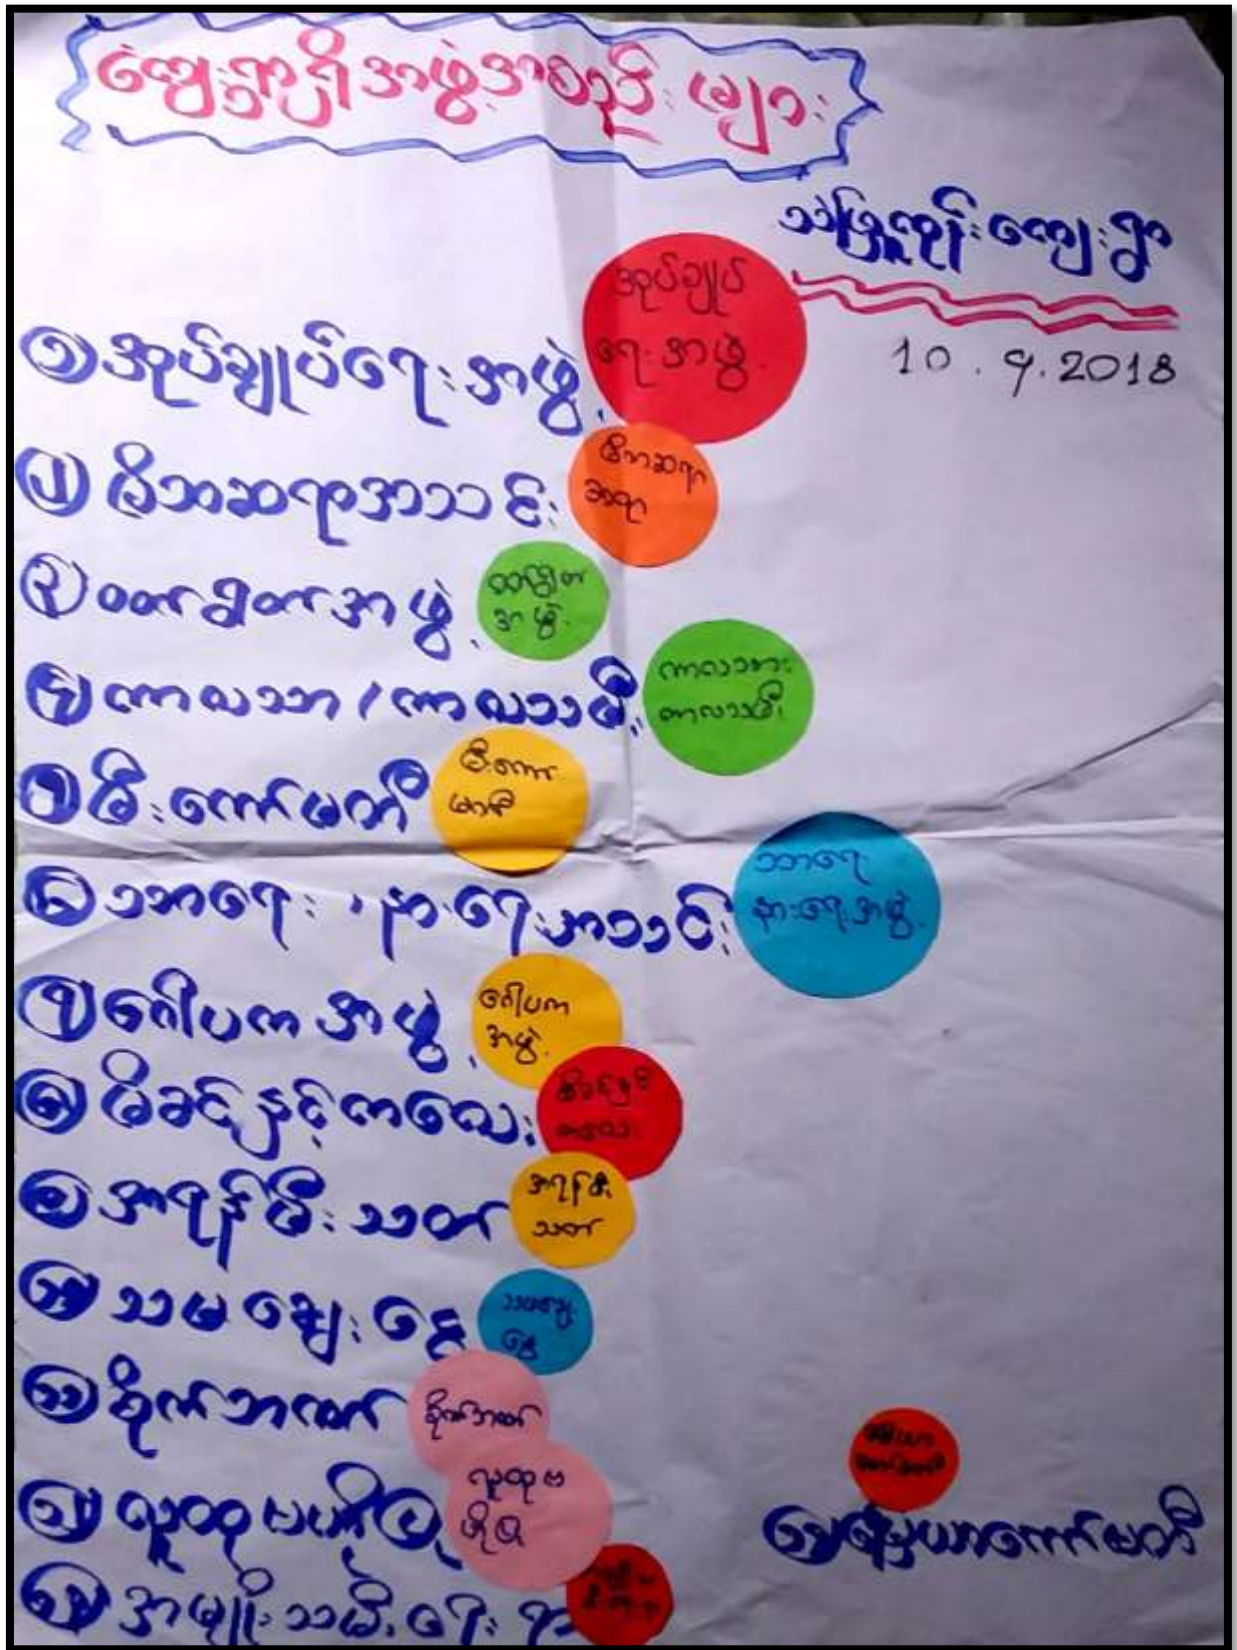 ကျေးရွာရှိအဖွဲ့အစည်းများ
သဲဖြူကုန်းကျေးရွာ
10.9.2018
၁) အုပ်ချုပ်ရေးအဖွဲ့
အုပ်ချုပ်
ရေးအဖွဲ့
၂) မိဘဆရာအသင်း
မိဘဆရာ
၃) ဝတ်ရွတ်အဖွဲ့
ဝတ်ရွတ်
အဖွဲ့
၄) ကာလသား/ကာလသမီး
ကာလသား
ကာလသမီး
၅) မီးကော်မတီ
မီးကော်
မတီ
၆) သာရေး၊နာရေးအသင်း
သာရေး
နာရေးအဖွဲ့
၇) ဂေါပကအဖွဲ့
ဂေါပက
အဖွဲ့
၈) မိခင်နှင့်ကလေး
မိခင်နှင့်
ကလေး
၉) အရန်မီးသတ်
အရန်မီး
သတ်
၁၀) သမချေးငွေ
သမချေး
ငွေ
၁၁) စိုက်ဘဏ်
စိုက်ဘဏ်
၁၂) လူထုဗဟိုပြု
လူထုဗ
ဟိုပြု
၁၃) အမျိုးသမီးရေးရာ
၁၄) မြေယာကော်မတီ
မြေယာ
ကော်မတီ